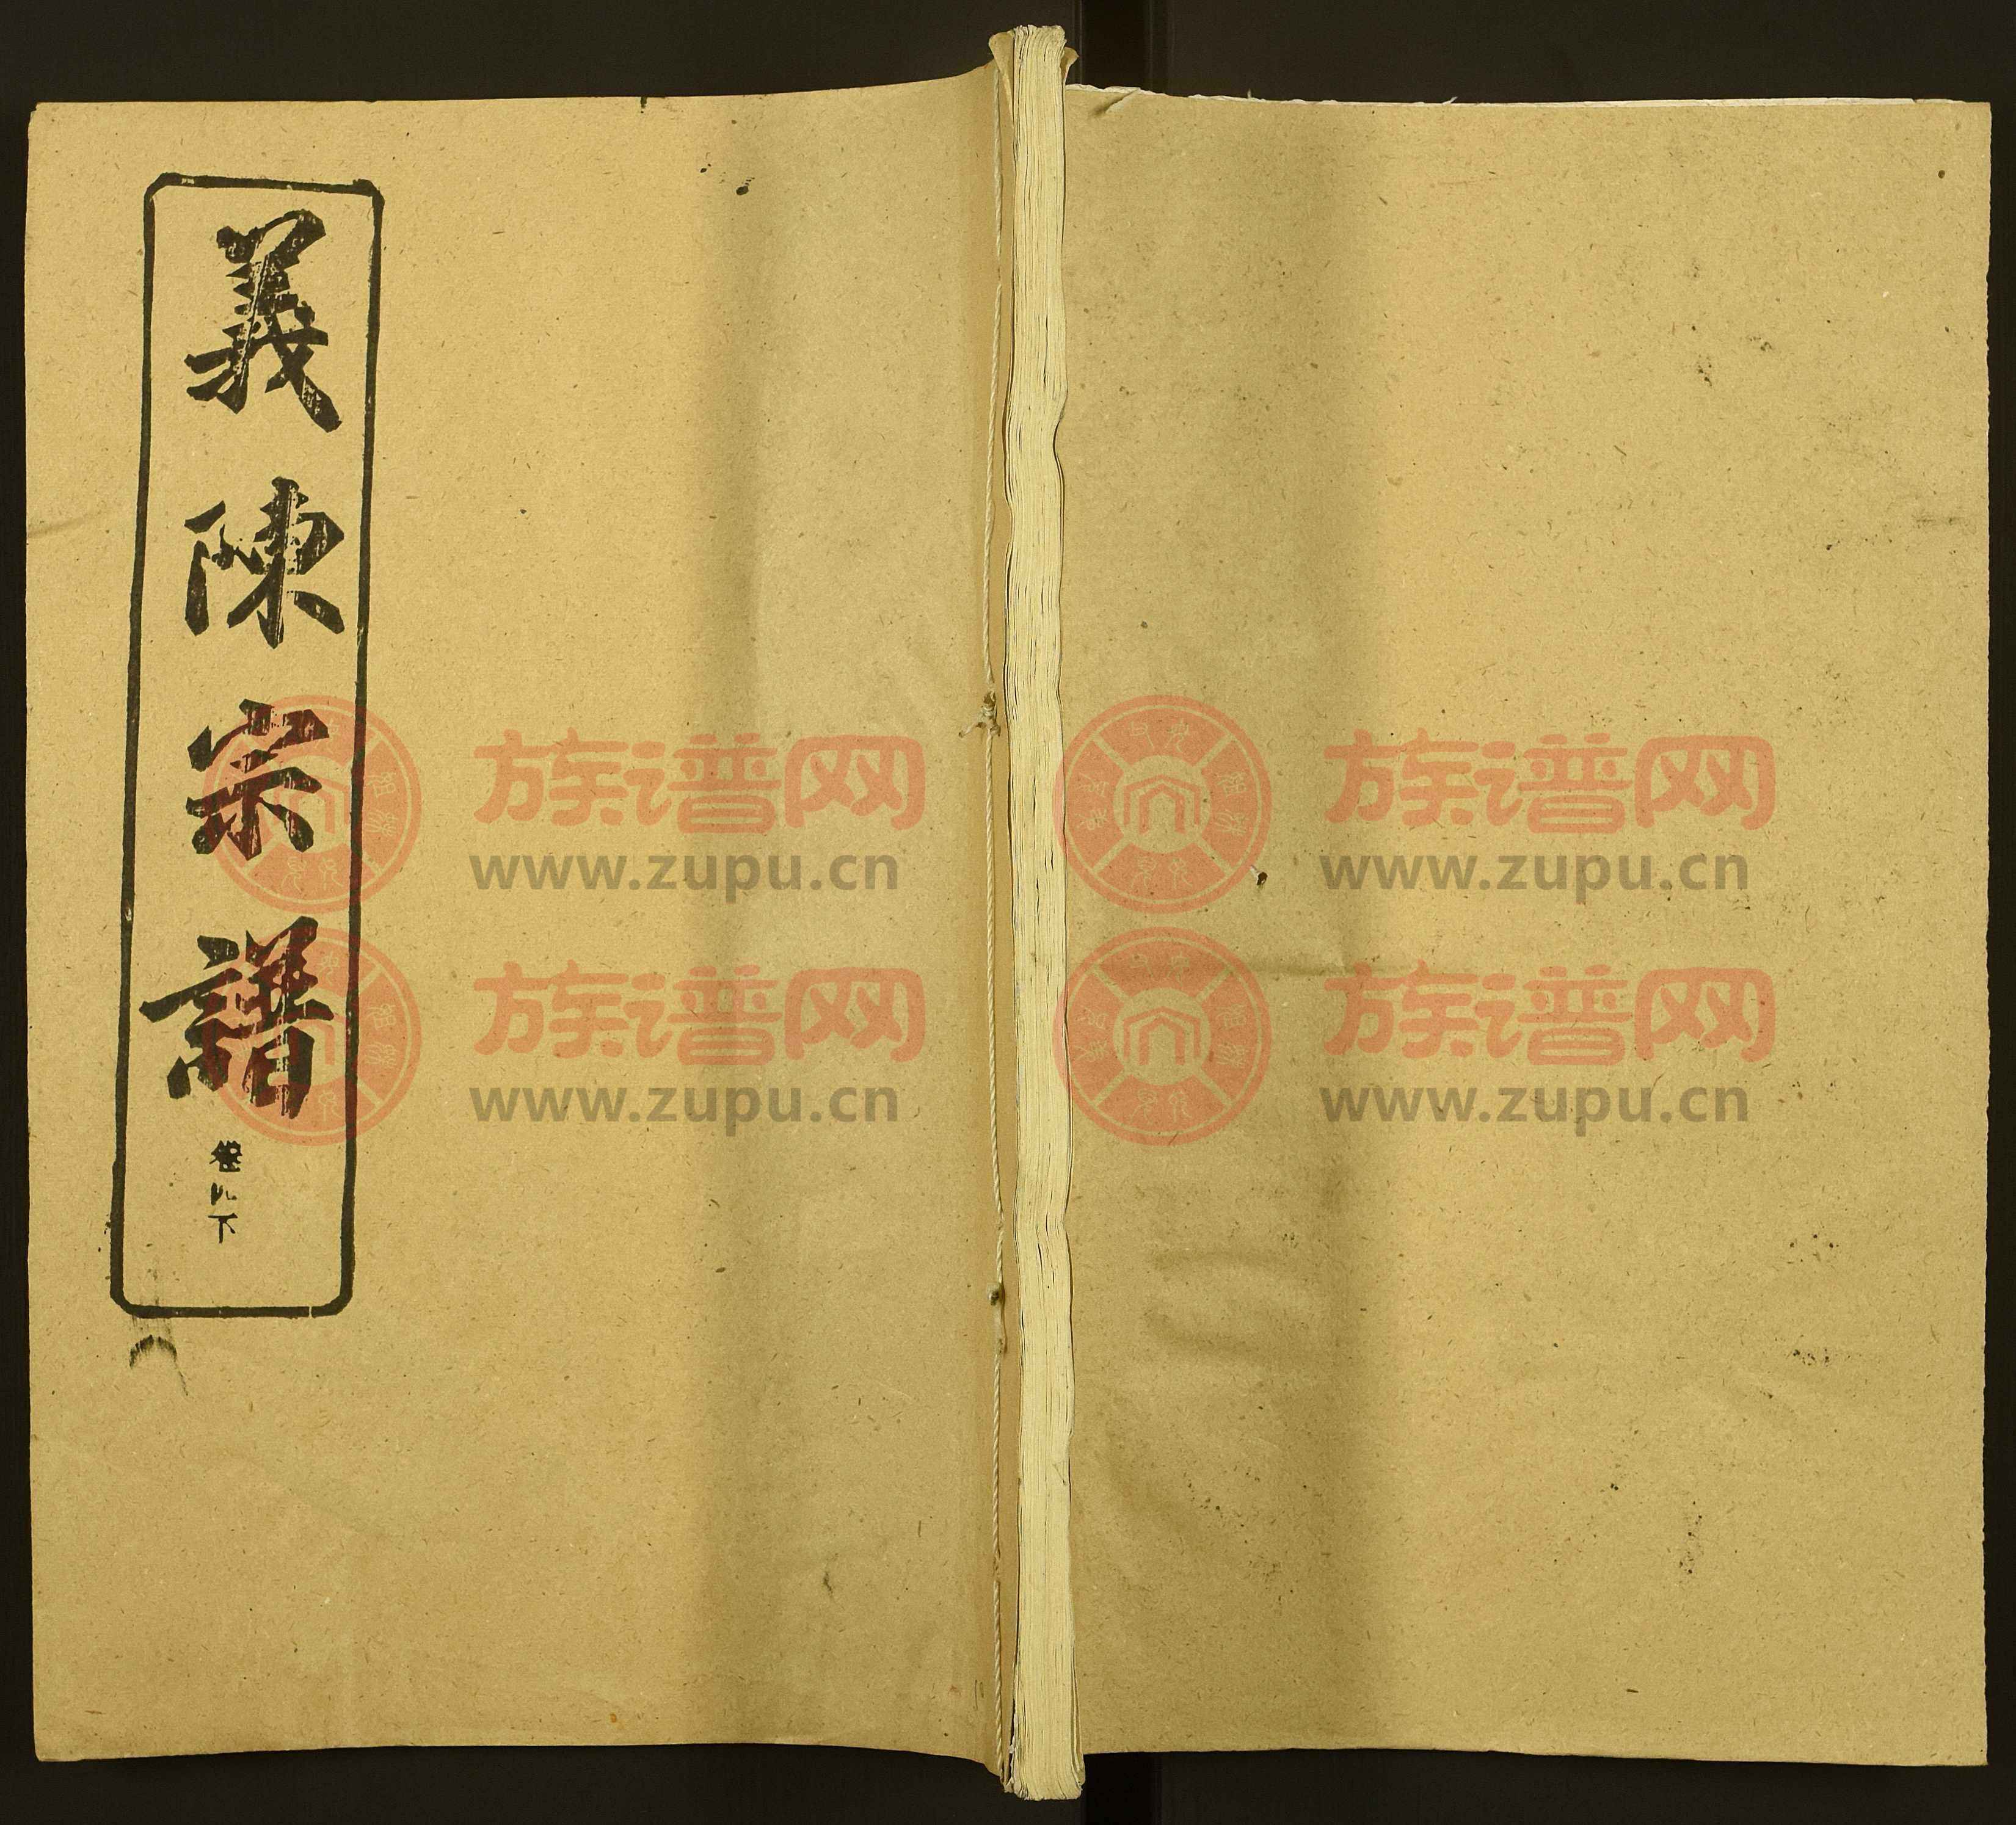 義陳宗譜
卷九下
族谱网
www.zupu.cn
族谱网
www.zupu.cn
族谱网
www.zupu.cn
族谱网
www.zupu.cn